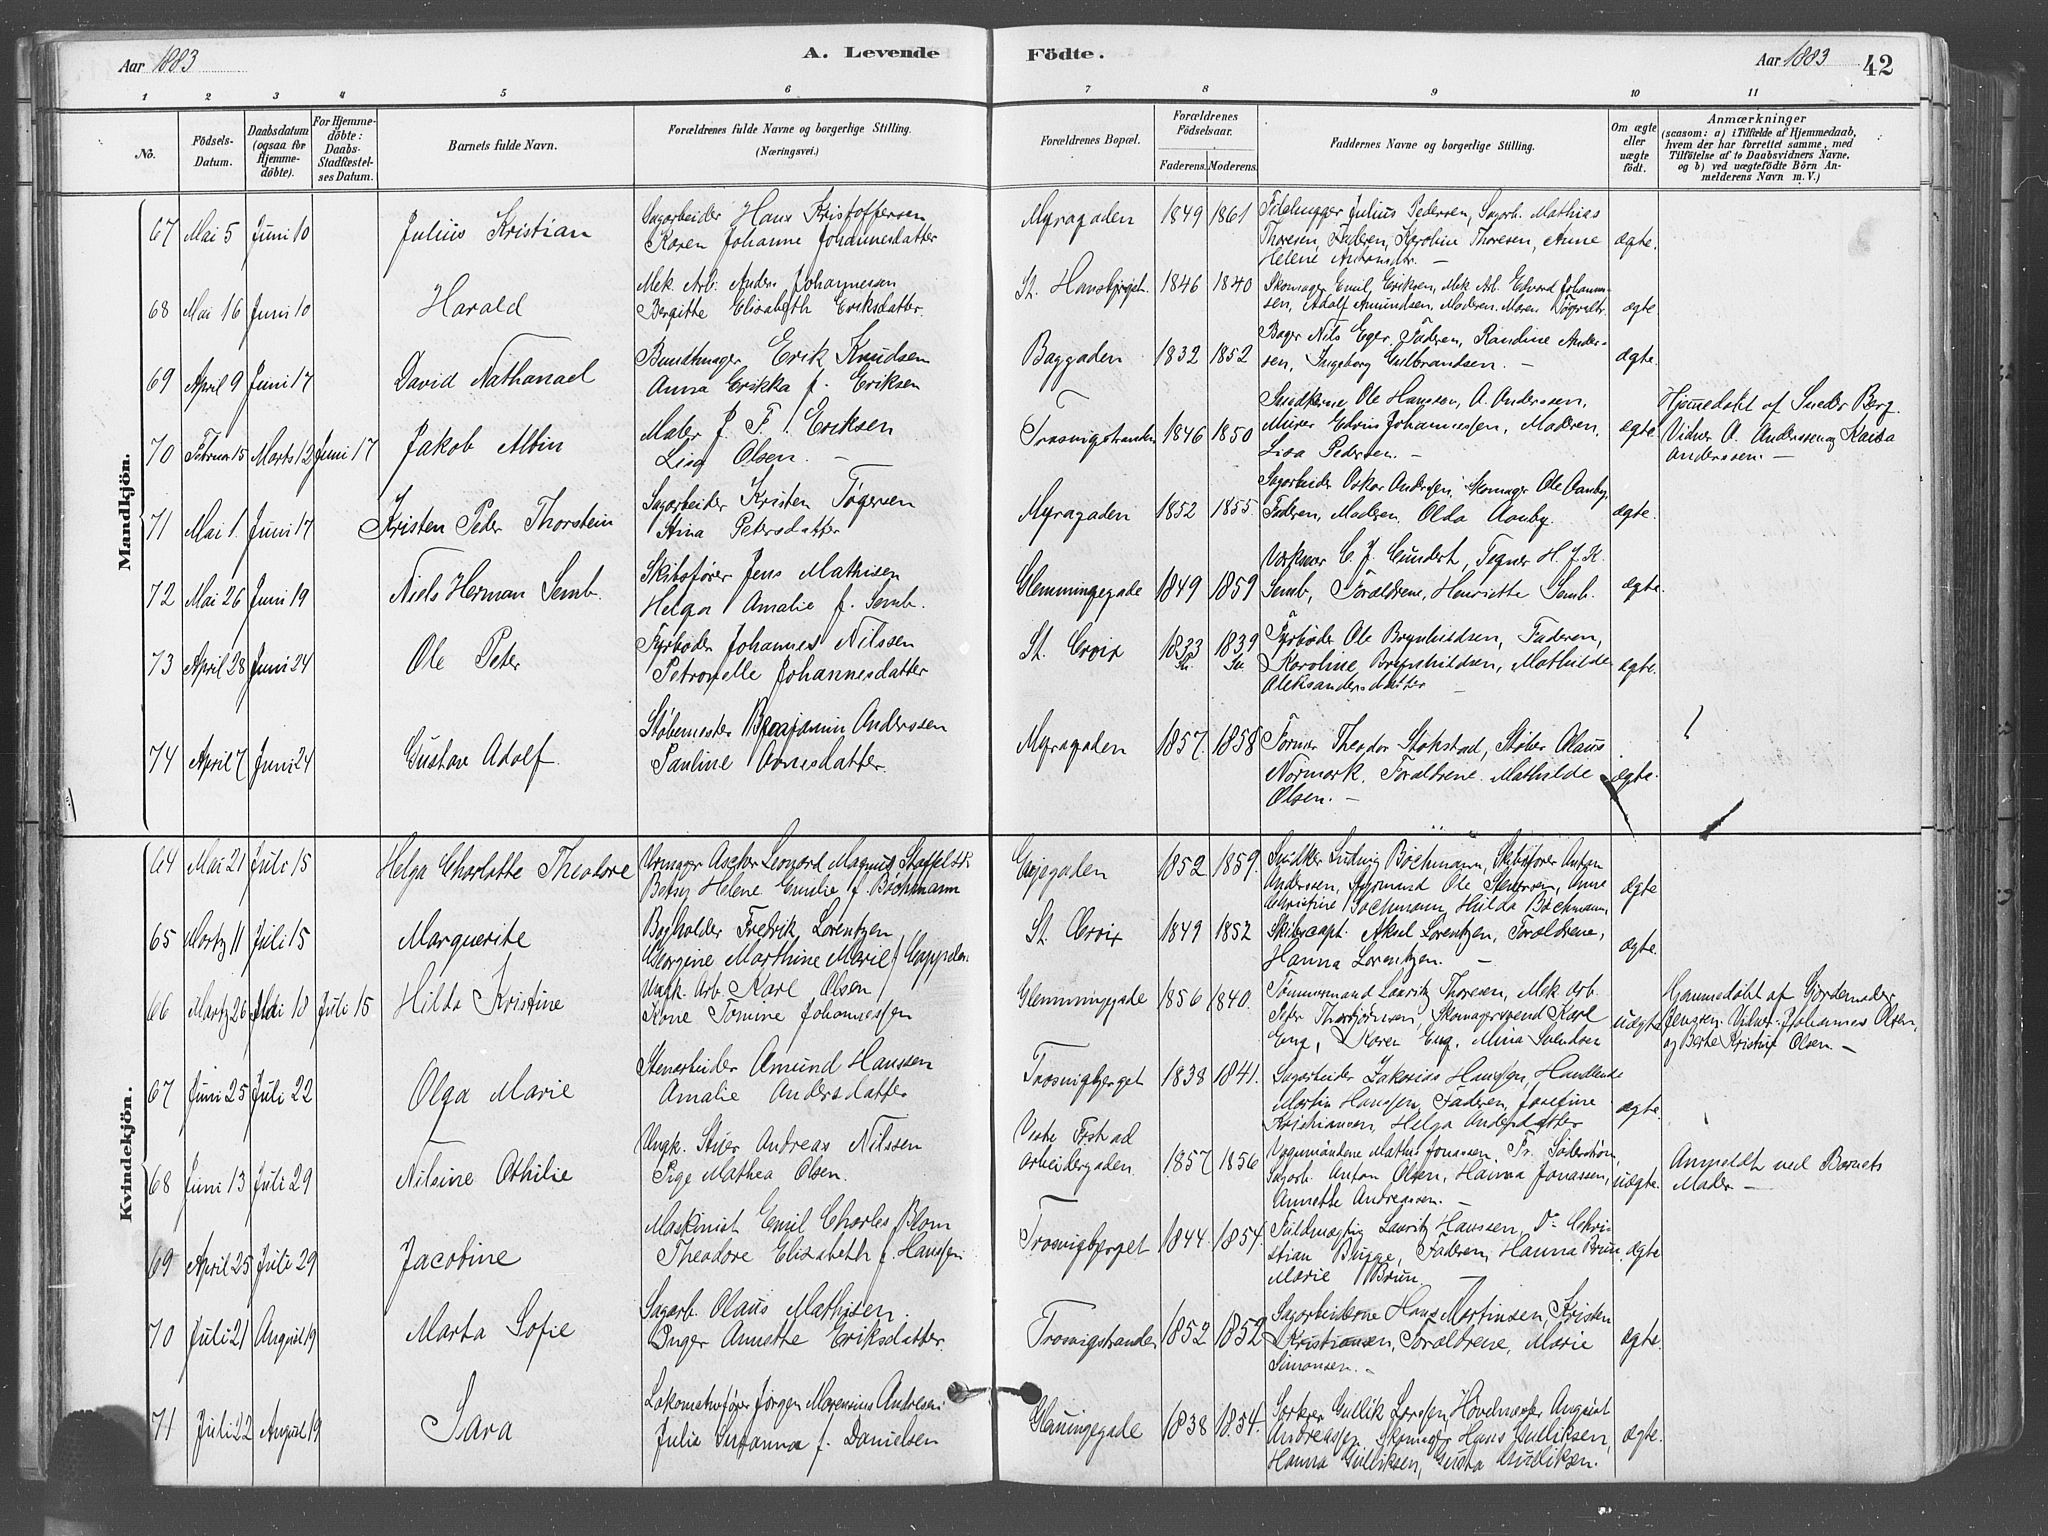 Aar 1883
A. Levende
Födte.
Aar 1883
42
1 2 3 4 5 6 7 8 9 10 11
No.
Födsels-Datum.
Daabsdatum (ogsaa for Hjemme-döbte).
For Hjemme-döbte: Daabs-Stadfæstel-ses Datum.
Barnets fulde Navn.
Forældrenes fulde Navne og borgerlige Stilling.
(Næringsvei.)
Forældrenes Bopæl.
Forældrenes Födselsaar.
Faderens. Moderens.
Faddernes Navne og borgerlige Stilling.
Om ægte eller uægte födt.
Anmærkninger
(saasom: a) i Tilfælde af Hjemmedaab, hvem der har forrettet samme, med Tilföielse af to Daabsvidners Navne, og b) ved uægtefödte Börn An-melderens Navn m. V.)
Mandkjön.
67 Mai 5 Juni 10 Julius Kristian
Sagarbeider Hans Kristoffersen
Karen Johanne Johannesdatter
Myragaden 1849 1861
Julius Pedersen, Sagarb. Mathias
Thoresen, Faderen, Karoline Thoresen, Anne
Helene
ægte.
68 Mai 16 Juni 10 Harald
Mek. Arb. Anders Johannesen
Bergitte Elisabeth Eriksdatter.
St. Hansbjerget. 1846 1840
Skomager Emil Eriksen, Mek. Arb. Edvard Johanne-
sen, Adolf Amundsen, Moderen, Maren
ægte
69 April 9 Juni 17 David Nathanael
Bundtmager Erik Knudsen
Anna Erikka f. Eriksen
Baggaden 1832 1852
Bager Nils Eger, Faderen, Randine Ander-
sen, Ingeborg Gulbrandsen. —
ægte.
70 Februar 15 Marts 12 Juni 17 Jakob Albin
Maler J. F. Eriksen
Lisa Olsen. —
Trosvigstranden 1846 1850
Snedkerne Ole Hanssen, A. Anderssen,
Murer Edvin Johannessen, Moderen,
Lisa Pedersen. —
ægte.
Hjemmedøbt af Snedker Berg.
Vidner A. Anderssen og Kaisa
Anderssen. —
71 Mai 1. Juni 17 Kristen Peder Thorstein
Sagarbeider Kristen Tøgersen
Stina Petersdatter
Myragaden 1852 1855
Sagarbeider Oskar Andersen, Skomager Ole Aanby,
Faderen, Moderen, Olda Aanby.
ægte.
72 Mai 26 Juni 19 Niels Herman Semb.
Skibsfører Jens Mathisen
Helga Amalie f. Semb.
Glemmingegade 1849 1859
C. J. Gundert, Tegner H. J. K.
Semb, Forældrene, Henriette Semb.
ægte.
73 April 28 Juni 24 Ole Peter
Fyrbøder Johannes Nilssen
Petronelle Johannesdatter
St. Croix 1833 1839
Fyrbøder Ole Brynhildsen, Faderen,
Karoline Brynhildsen, Mathilde
Aleksandersdatter —
ægte.
74 April 7 Juni 24 Gustav Adolf
Støbemester Benjamin Anderssen
Pauline Arnesdatter.
Myragaden 1857 1858
Former Theodor Stokstad, Støber Olaus
Normark, Forældrene, Mathilde
Olsen. —
ægte.
Kvindekjön.
64 Mai 21 Juli 15 Helga Charlotte Theodore
Urmager Leonard Magnus Staffeldt.
Betsy Helene Emilie f. Bøchmann
1852 1859.
Snidker Ludvig Bøchmann, Skibsfører Anton
Anderssen, Styrmand Ole Anne
Christine Bøchmann, Hilda Bøchmann,
ægte
65 Marts 11 Juli 15 Marguerite
Bogholder Fredrik Lorentzen
Georgine Marthine Marie f. Cappelen
St. Croix 1849 1852
Skibscapt. Aksel Lorentzen, Forældrene,
Hanna Lorentzen. —
ægte.
66 Marts 26 Mai 10 Juli 15 Hilda Kristine
Ungk. Arb. Karl Olsen
Kone Tomine Johannessen
Glemmingegade 1856 1840.
Tømmermand Lauritz Thoresen, Mek. Arb.
Peter Thorbjørnsen, Skomagersvend Karl
Eng, Karen Eng, Mina Svendsen
uægte
Hjemmedøbt af Gjordemoder
Jensen. Vidner: Johannes Olsen,
og Berte Kristine Olsen. —
67 Juni 25 Juli 22 Olga Marie
Stenarbeider Amund Hanssen
Amalie Andersdatter
Trosvigbjerget 1838 1841.
Sagarbeider Zakarias Hanssen, Handlende
Martin Hanssen, Faderen, Josefine
Kristiansen, Helga Andersdatter
ægte.
68 Juni 13 Juli 29 Nilsine Othilie
Ungk. Andreas Nilssen
Pige Mathea Olsen.
Arbeidergaden 1857 1856
Vognmændene Mathis Jonassen, Fr. Søderstrøm,
Sagarb. Anton Olsen, Hanna Jonassen,
Annette Andreassen. —
uægte.
Anmeldt ved Barnets
Moder —
69 April 25 Juli 29 Jacobine
Maskinist Emil Charles Blom
Theodore Elisabeth f. Hanssen
Trosvigbjerget 1844 1854.
Fuldmægtig Lauritz Hanssen, Do Chri-
stian Bugge, Faderen, Hanna Bruun,
Marie Bruun. —
ægte
70 Juli 21 August 19 Marta Sofie
Sagarb. Olaus Mathisen.
Inger Annette Eriksdatter.
Trosvigstranden 1852 1852
Sagarbeiderne Hans Martinsen, Kristen
Kristiansen, Forældrene, Marie
Simonsen. —
ægte.
71 Juli 22 August 19 Sara
Lokomotivfører Jørgen Marensius Andresen
Julie Susanna f. Danielsen
Glemmingegade 1838 1854.
Gullik Larssen, August
Andreassen, Skomager Hans Gulliksen,
Hanna Gulliksen, Gusta Gulliksen.
ægte.